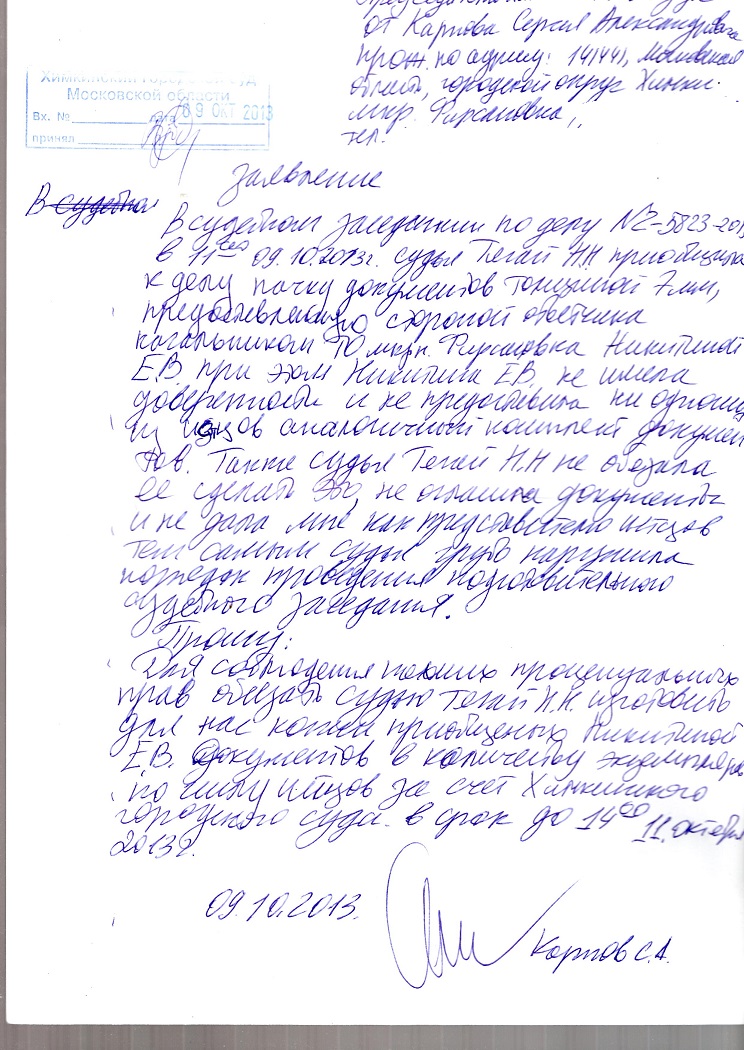 от Карпова Сергея Александровича
прож. по адресу: 141441, Московская
область, городской округ Химки.
мкр. Фирсановка,,
тел.
Химкинский городской суд
Московской области
Вх. № 09 ОКТ 2013
принял
Заявление
В судебном
В судебном заседании по делу №2-5823-2013
в 11 час 09.10.2013г. судья Тегай Н.Н. приобщила
к делу пачку документов толщиной 7мм,
предоставленную стороной ответчика
начальником ТО мкрн. Фирсановка Никитиной
Е.В. при этом Никитина Е.В. не имела
доверенности и не предоставила ни одному
из истцов аналогичный комплект докумен
тов. Также судья Тегай Н.Н не обязала
ее сделать это, не огласила документы
и не дала мне как представителю истцов
тем самым судья грубо нарушила
порядок проведения подготовительного
судебного заседания.
Прошу:
Для соблюдения наших процесуальных
прав обезать судью Тегай Н.Н. изготовить
для нас копии приобщенных Никитиной
Е.В. документов в количестве экземпляров
по числу истцов за счет Химкинского
городского суда в срок до 14 00 11. октября
2013г.
09.10.2013.
Карпов С.А.